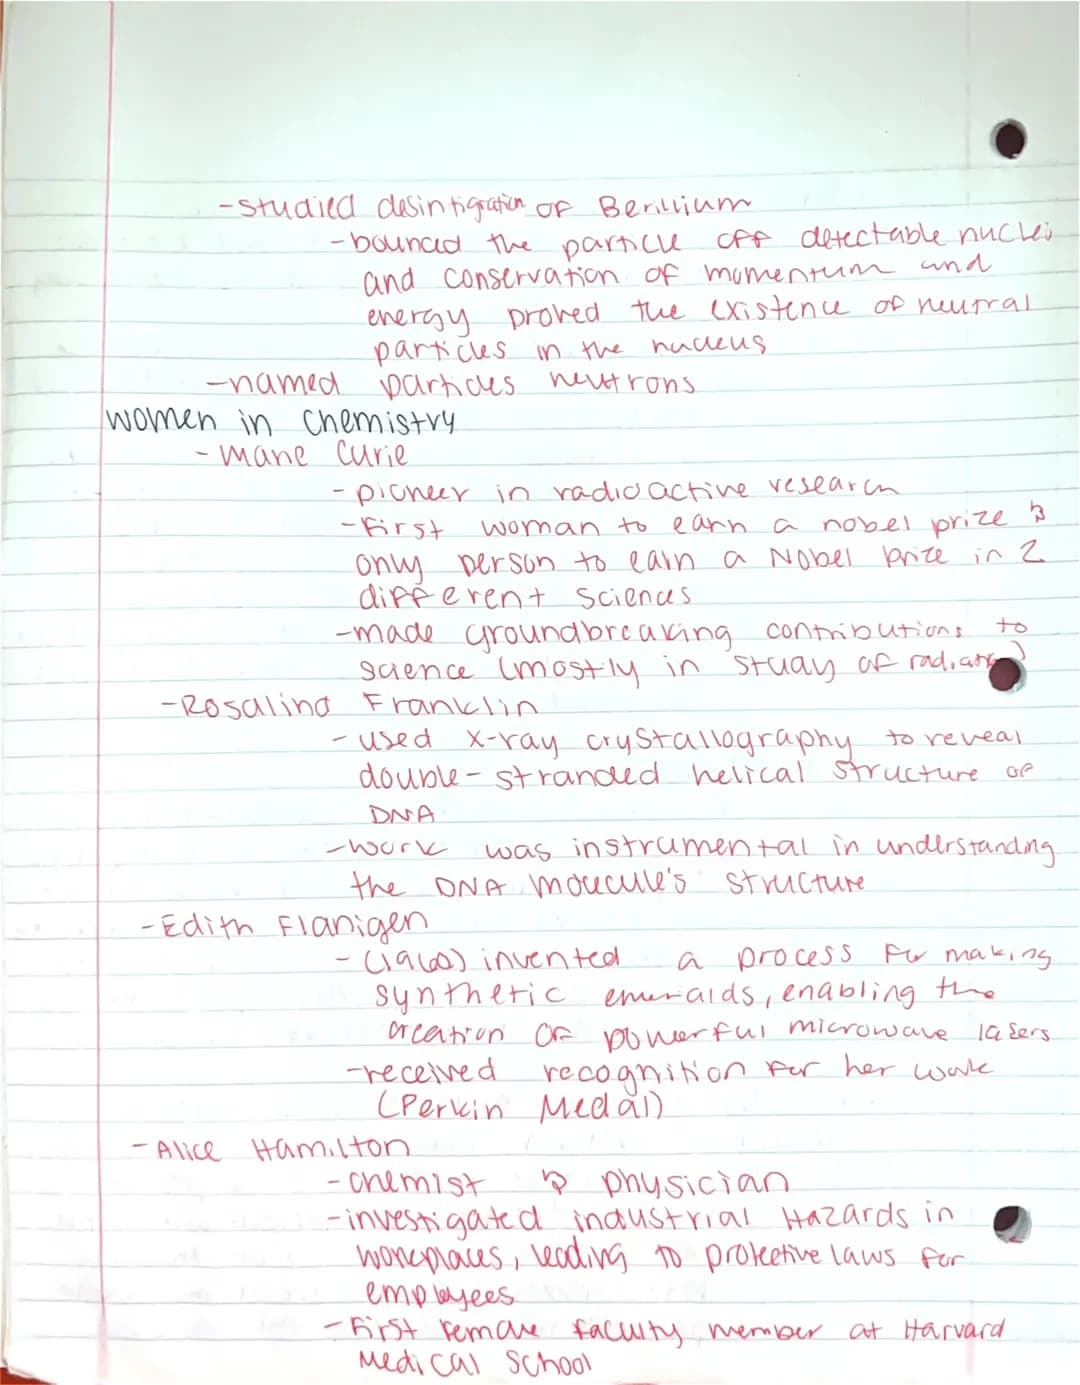 -studied desintigration of Berillium
-bounced the particle off detectable nuclei
and conservation of momentum and
energy proved the existence of neutral
particles in the nucleus
-named particles neutrons
women in chemistry
-Marie Curie
-pioneer in radioactive research
-First woman to earn a nobel prize &
only person to earn a Nobel Prize in 2
different sciences
-made groundbreaking contributions to
science (mostly in study of radiation)
-Rosalind Franklin
-used x-ray crystallography to reveal
double-stranded helical structure of
DNA
-work was instrumental in understanding
the DNA molecule's structure
-Edith Flanigen
-(1960s) invented a process for making
synthetic emeralds, enabling the
creation of powerful microwave lasers
-received recognition for her work
(Perkin Medal)
-Alice Hamilton
-chemist & physician
-investigated industrial Hazards in
workplaces, leading to protective laws for
employees
-First female faculty member at Harvard
Medical School